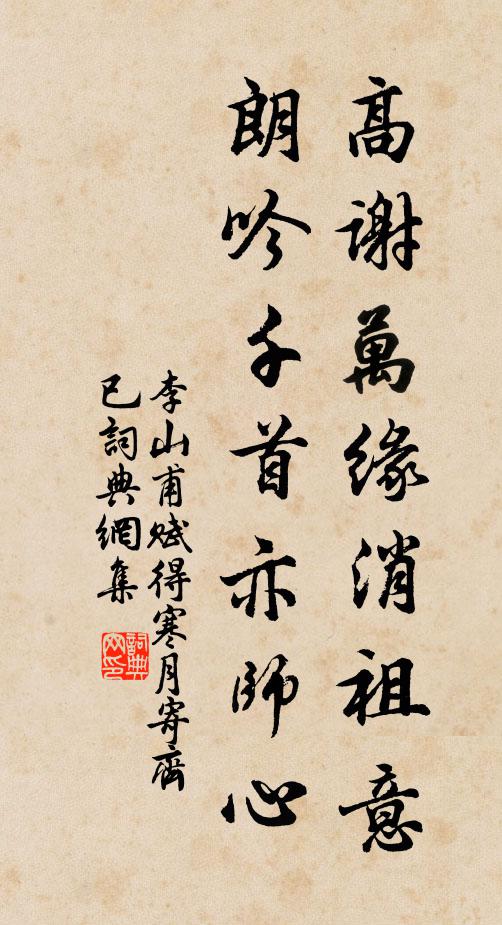 高謝萬緣消祖意
朗吟千首亦師心
李山甫賦得寒月寄齊
已詞典網集
詞典
网印